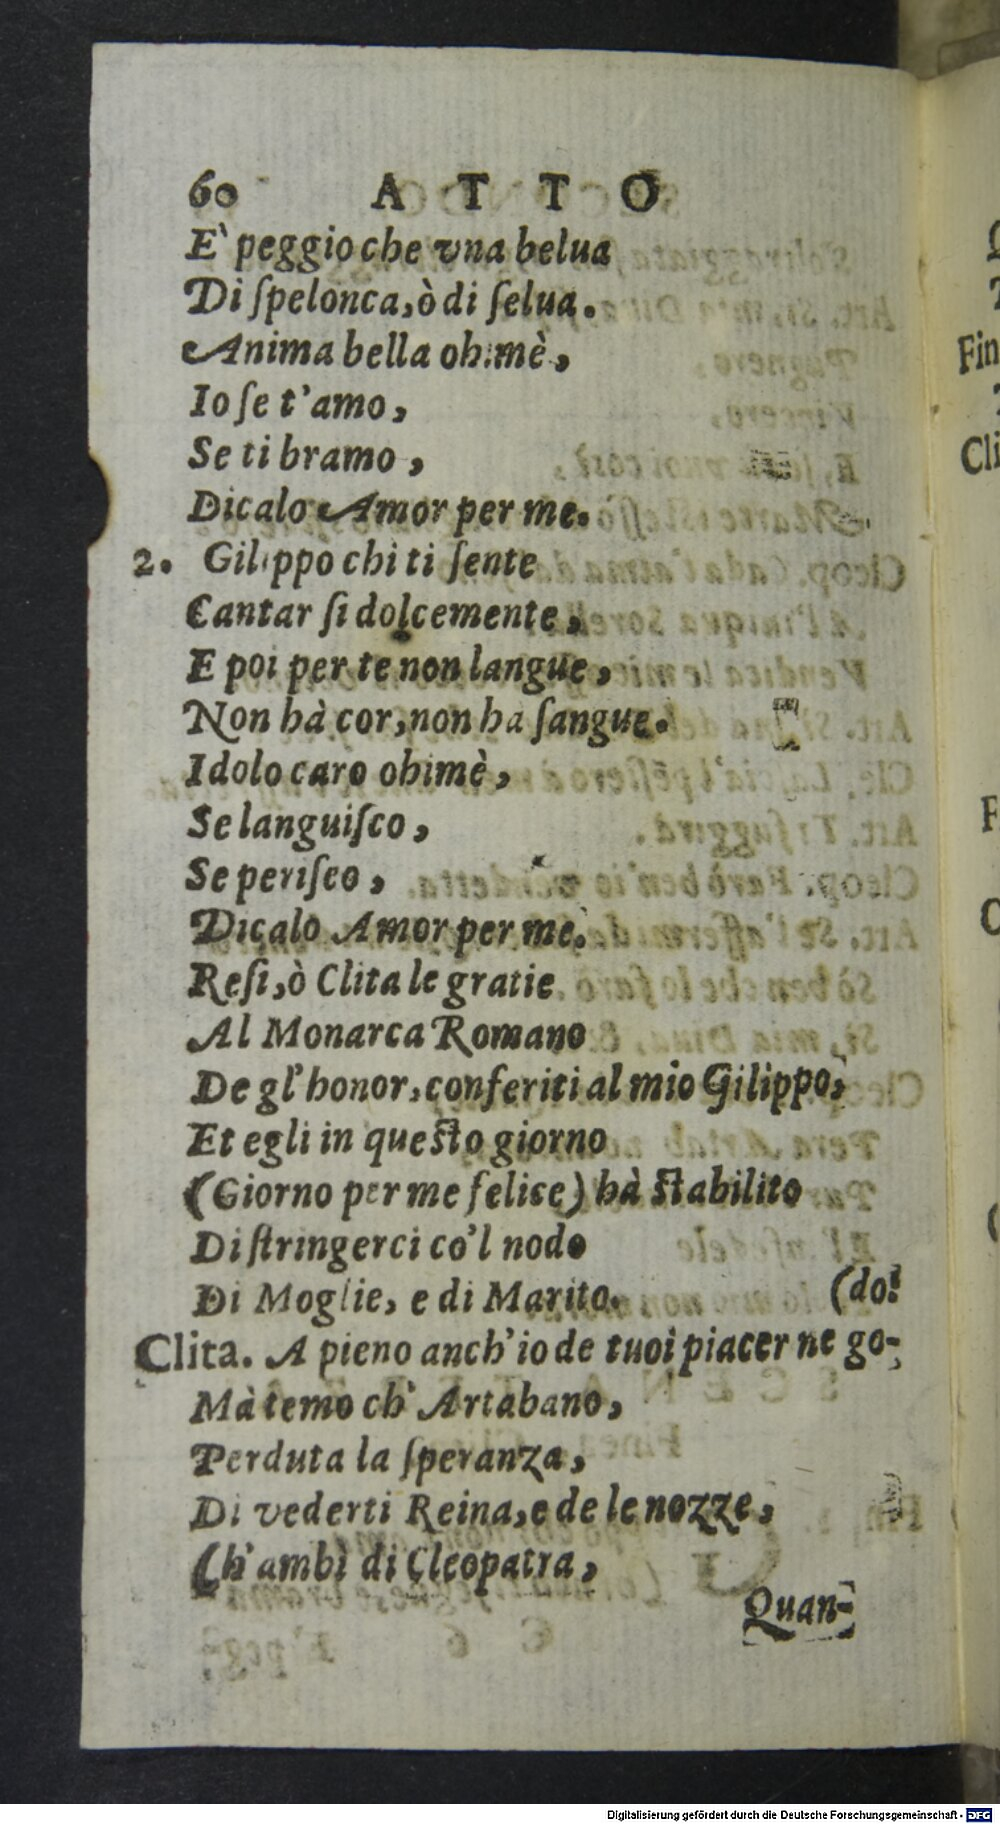 60 ATTO
E' peggio che vna belua
Di ſpelonca, ò di ſelua.
Anima bella ohimè,
Io ſe t'amo,
Se ti bramo,
Dicalo Amor per me.
2. Gilippo chi ti ſente
Cantar ſi dolcemente,
E poi per te non langue,
Non hà cor, non ha ſangue.
Idolo caro ohimè,
Se languiſco,
Se periſco,
Dicalo Amor per me.
Reſi, ò Clita le gratie
Al Monarca Romano
De gl'honor, conferiti al mio Gilippo,
Et egli in queſto giorno
(Giorno per me felice) hà ſtabilito
Di ſtringerci co'l nodo
Di Moglie, e di Marito. (do!
Clita. A pieno anch'io de tuoi piacer ne go-
Mà temo ch' Artabano,
Perduta la ſperanza,
Di vederti Reina, e de le nozze,
Ch'ambì di Cleopatra,
Quan-
Fin
Cli
F
Digitalisierung gefördert durch die Deutsche Forschungsgemeinschaft - DFG